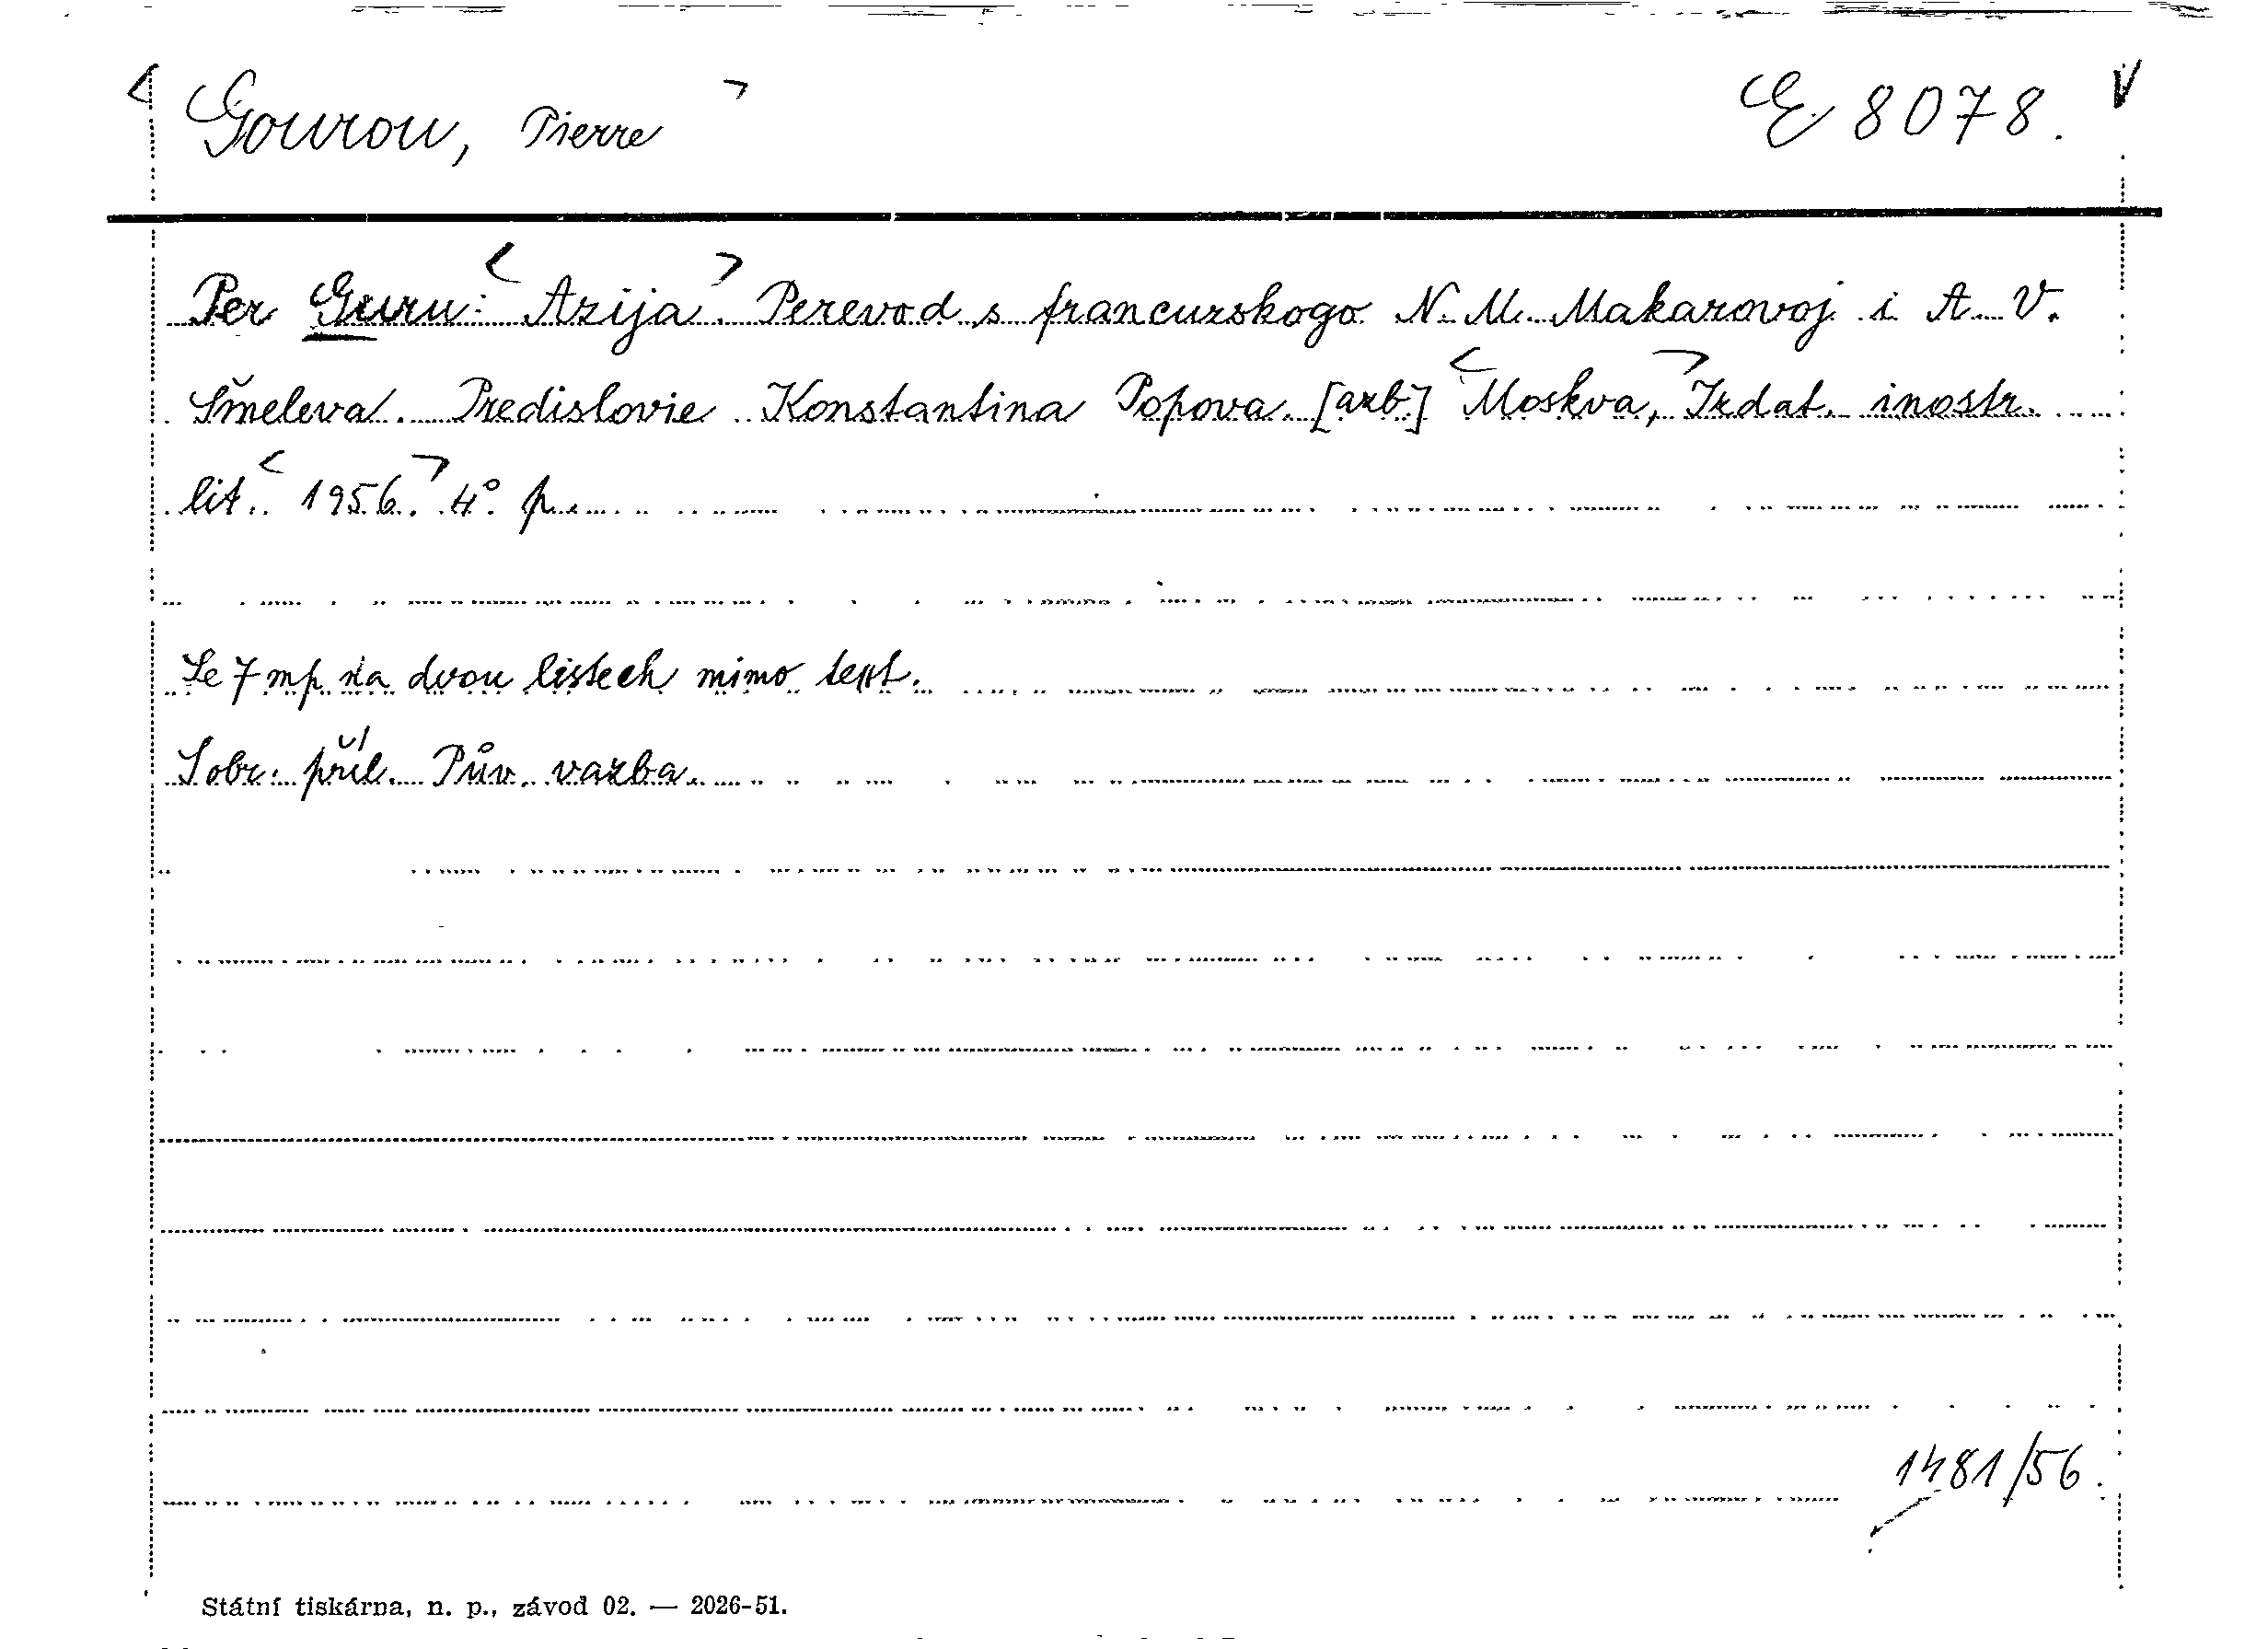 < Gourou, Pierre > E 8078. V
Per Guru: < Azija >. Perevod s francuzskogo N. M. Makarovoj i A. V.
Šmeleva. Predislovie Konstantina Popova. [azb.] < Moskva, > Izdat. inostr.
lit. < 1956. > 4° p.
Se 7 mp na dvou listech mimo text.
S obr. příl. Pův. vazba.
1481/56.
Státní tiskárna, n. p., závod 02. — 2026-51.